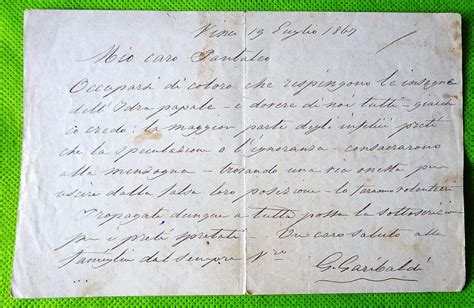 Vinci 19 Luglio 1867
Mio caro Pantaleo
Occuparsi di coloro che respingono le insegne
dell'Idra papale - è dovere di noi tutti - giacchè
io credo: la maggior parte degli infelici preti
che la speculazione o l'ignoranza - consacrarono
alla menzogna - trovando una via onesta per
uscire dalla falsa loro posizione - lo faranno volentieri
Propagate dunque a tutta possa la sottoscrizione
per i preti spretati Un caro saluto alla
famiglia dal sempre vro
G. Garibaldi